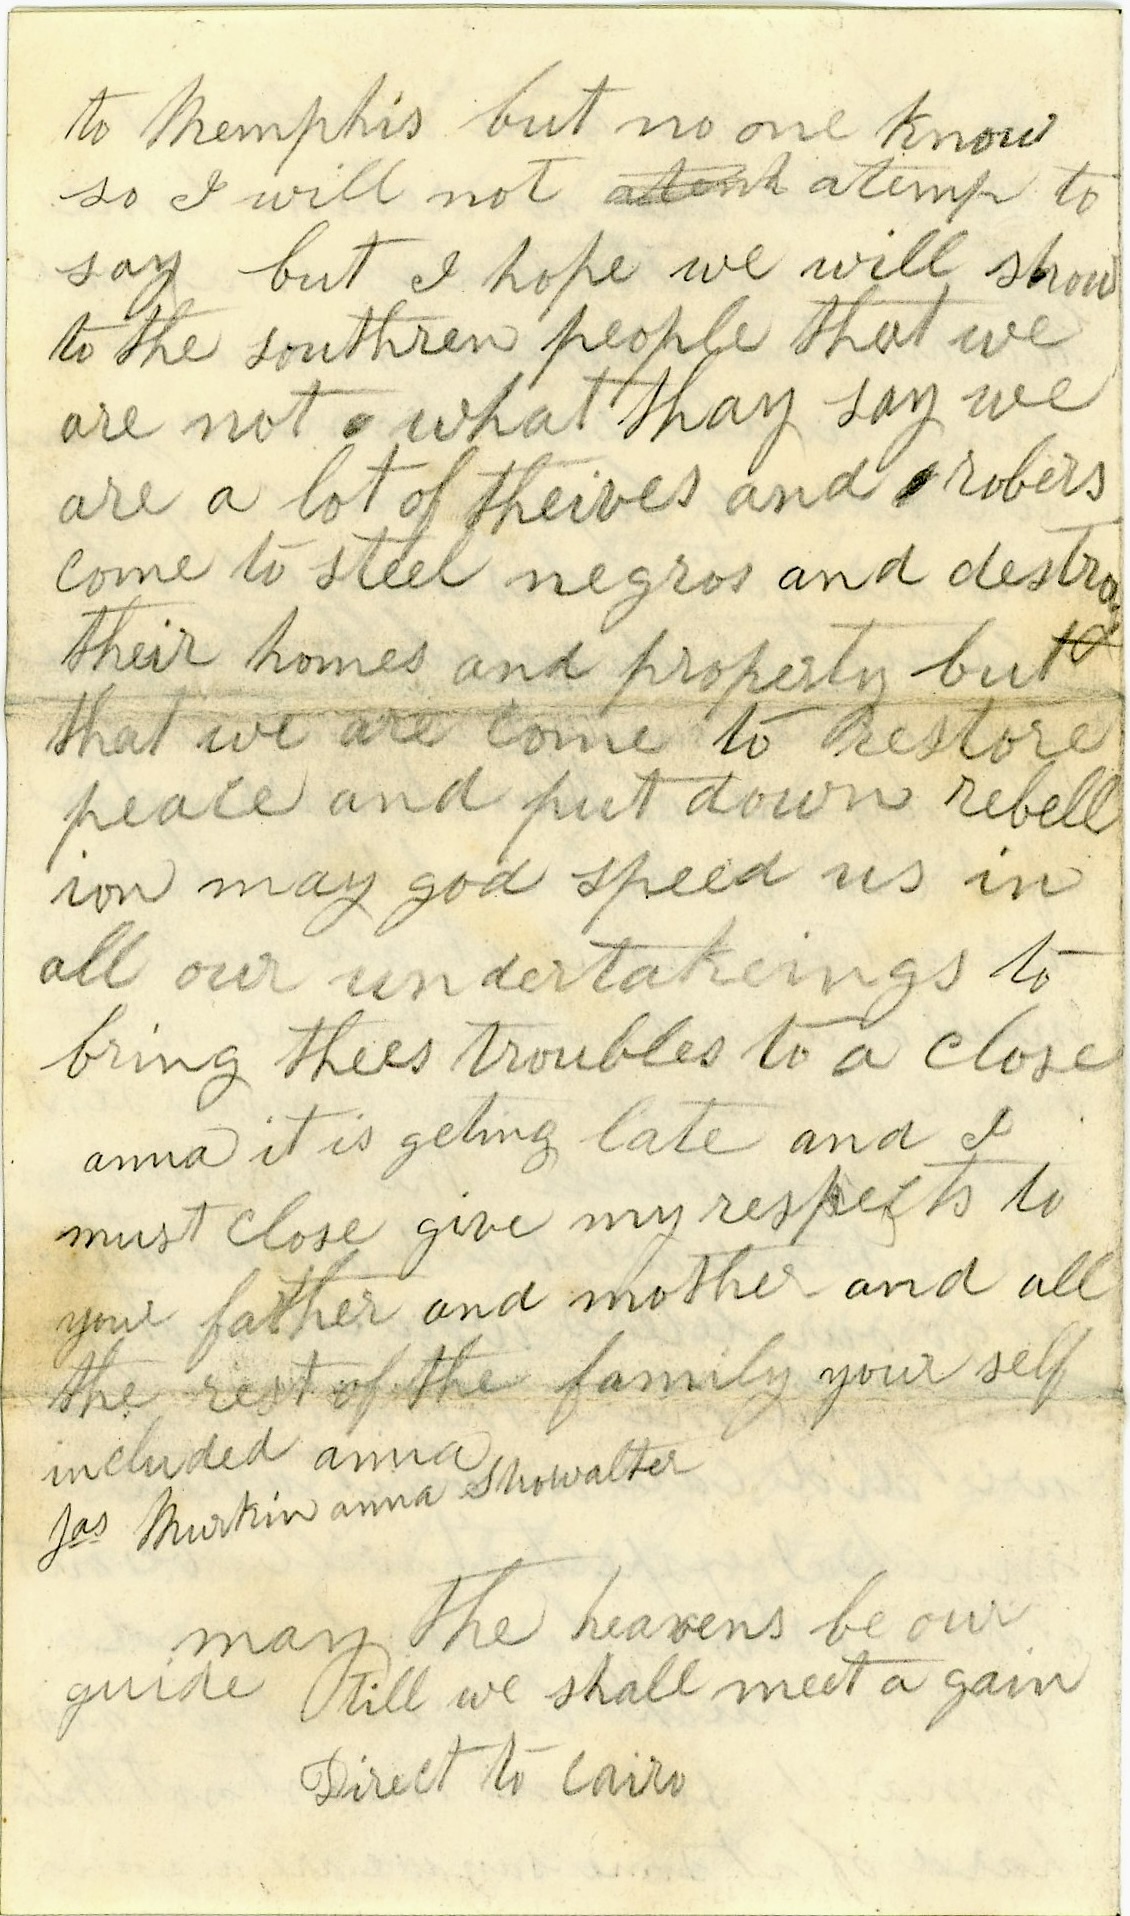 to Memphis but no one know
so I will not atemp to
say but I hope we will show
to the southren people that we
are not what thay say we
are a lot of theives and robers
come to steel negros and destroy
their homes and property but
that we are come to restore
peace and put down rebell
ion may god speed us in
all our undertakeings to
bring thees troubles to a close
anna it is geting late and I
must close give my respects to
your father and mother and all
the rest of the family your self
included anna
Jas Murkin anna Showalter
may the heavens be our
guide till we shall meet a gain
Direct to Cairo